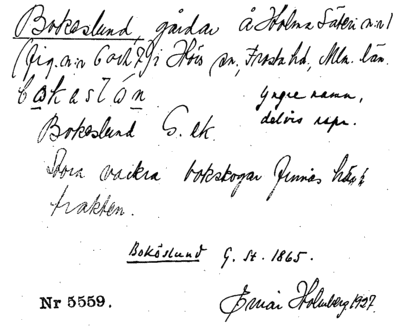 Bokeslund, gårdar å Holma Säteri n:r 1
(fig. n:r 6 och 7) i Hörs sn, Frosta hd, Mlm. län.
bokaslón
Yngre namn,
delvis
Bokeslund G. ek.
Stora vackra bokskogar finnas här i
trakten.
Boköslund G. St. 1865.
Nr 5559.
Holmberg 1927.